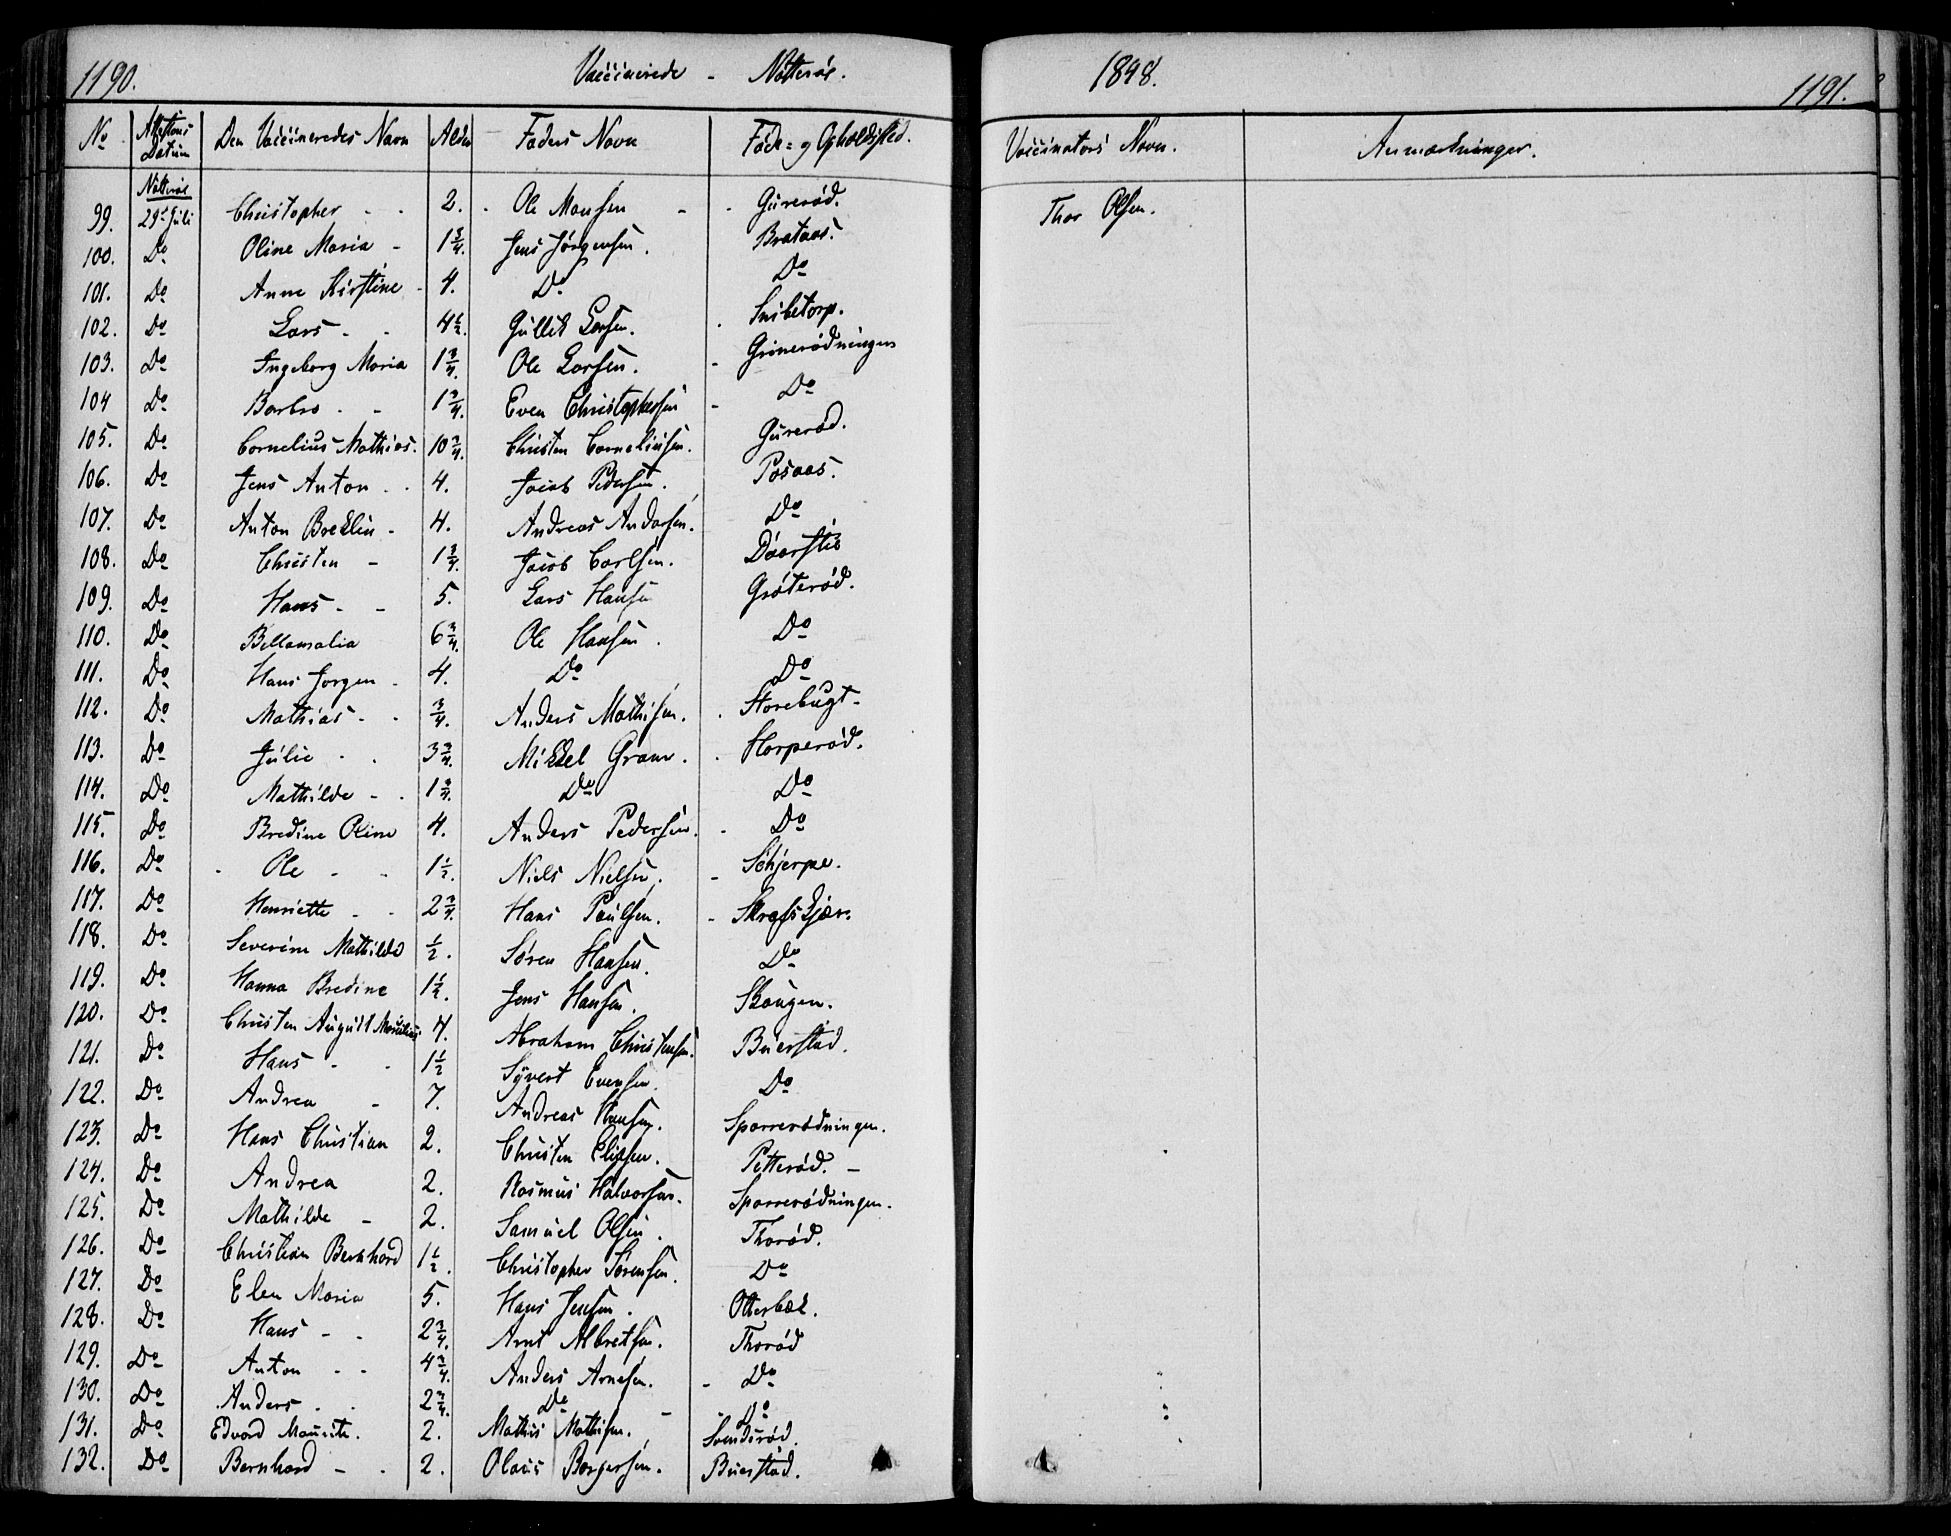 1190. Vaccinerede - Nøtterøe. 1848. 1191.
No Attestens Datum Den Vaccineredes Navn Alder Faders Navn Føde- og Opholdssted. Vaccinators Navn. Anmærkninger.
Nøtterøe
99. 29de Juli Christopher - - 2. Ole Hansen - - Gurerød. Thor Olsen.
100. Do Oline Maria - 1 3/4. Jens Jørgensen. Brataas.
101. Do Anne Kirstine - 4. Do Do
102. Do Lars - - 4 1/2. Gullik Larsen. Snibetorp.
103. Do Ingeborg Maria 1 3/4. Ole Larsen. - Grimerødningen
104 Do Barbro - - 1 3/4. Even Christophersen - Do
105. Do Cornelius Mathias. 10 3/4. Christen Corneliusen. Gurerød.
106. Do Jens Anton - - 4. Jacob Pedersen. Posaas.
107. Do Anton - 4. Andreas Andersen. Do
108. Do Christen - 1 3/4. Jacob Carlsen.
109. Do Hans - - 5. Lars Hansen Grøterød.
110. Do Bellamalia 6 3/4. Ole Hansen. Do
111. Do Hans Jørgen - 4. Do Do
112. Do Mathias - - 3/4. Anders Mathisen. Storebugt -
113. Do Julie - - 3 3/4. Mikkel Gram. Horperød.
114. Do Mathilde - - 1 3/4. Do Do
115. Do Bredine Oline 4. Anders Pedersen. - Do
116. Do Ole - - 1 1/2. Niels Nielsen. - Schjerpe.
117. Do Henriette - - 2 3/4. Hans Paulsen. -
118. Do Severine Mathilde 1/2. Søren Hansen. Do
119. Do Hanna Bredine 1 1/2. Jens Hansen. Skougen.
120. Do Christen August 4. Abraham Christensen. Buerstad.
121. Do Hans - - 1 1/2 Syvert Evensen. Do
122. Do Andrea - 7. Andreas Hansen. Sporrerødningen.
123. Do Hans Christian 2. Christen Petterød. -
124. Do Andrea 2. Rasmus Halvorsen. Sporrerødningen.
125. Do Mathilde - 2. Samuel Olsen. Thorød.
126. Do Christian Bernhard 1 1/2. Christopher Sørensen. Do
127. Do Elen Maria 5. Hans Jensen. Otterbæk.
128. Do Hans - - 2 3/4. Arnt Albretsen. Thorød
129. Do Anton - - 4 3/4. Anders Arnesen. - Do
130. Do Anders - - 2 3/4. Do - Do
131. Do Edvard Mauritz. 2. Mathis Mathisen. Svendsrød.
132. Do Bernhard - - 2. Olaus Borgersen. Buerstad.